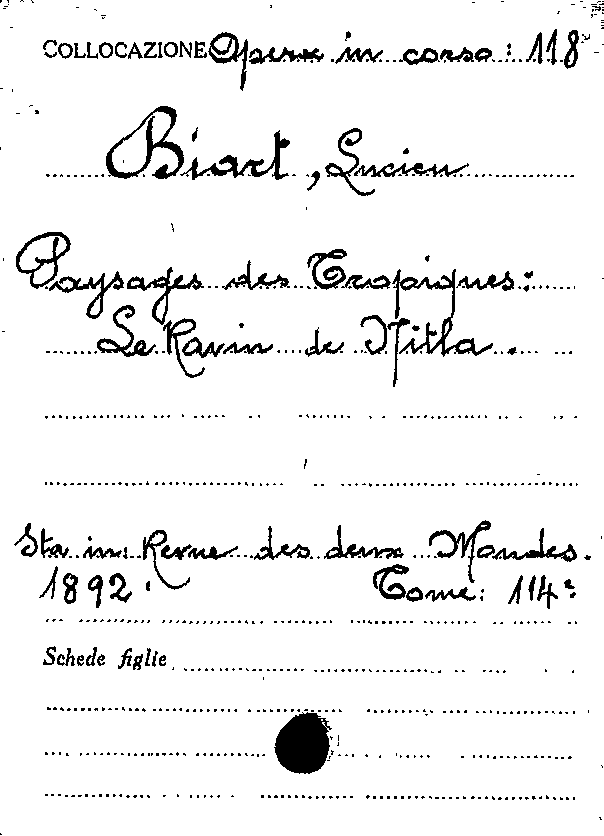 COLLOCAZIONE Opere in corso: 118
Biart, Lucien
Paysages des Tropiques:
Le Ravin de Mitla.
Sta in: Revue des deux Mondes.
1892. Tome: 114º
Schede figlie